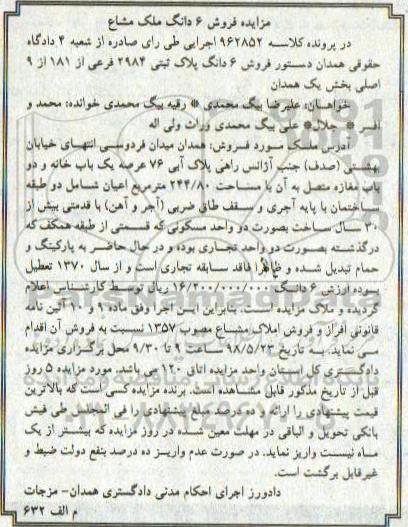 مزایده فروش ۶ دانگ ملک مشاع
در پرونده کلاسه ۹۶۲۸۵۲ اجرایی طی رای صادره از شعبه ۴ دادگاه
حقوقی همدان دستور فروش ۶ دانگ پلاک ثبتی ۲۹۸۴ فرعی از ۱۸۱ از ۹
اصلی بخش یک همدان
خواهان: علیرضا بیگ محمدی * رقیه بیگ محمدی خوانده: محمد و
* جلال* علی بیگ محمدی وراث ولی اله
آدرس ملک مورد فروش: همدان میدان فردوسی انتهای خیابان
بهشتی (صدف) جنب آژانس راهی پلاک آبی ۷۶ عرصه یک باب خانه و دو
باب مغازه متصل به آن با مساحت ۲۴۴/۸۰ مترمربع اعیان شامل دو طبقه
ساختمان با پایه آجری و سقف طاق ضربی (آجر و آهن) با قدمتی بیش از
۳۰ سال ساخت بصورت دو واحد مسکونی که قسمتی از طبقه همکف که
درگذشته بصورت دو واحد تجاری بوده و در حال حاضر به پارکینگ و
حمام تبدیل شده و ظاهرا فاقد سابقه تجاری است و از سال ۱۳۷۰ تعطیل
بوده ارزش ۶ دانگ ۱۶/۲۰۰/۰۰۰/۰۰۰ ریال توسط کارشناس اعلام
گردیده و ملاک مزایده است. بنابراین این اجرا وفق ماده ۹ و ۱۰ آئین نامه
قانونی افراز و فروش املاک مشاع مصوب ۱۳۵۷ نسبت به فروش آن اقدام
می نماید. به تاریخ ۹۸/۵/۲۳ ساعت ۹ تا ۹/۳۰ محل برگزاری مزایده
دادگستری کل استان واحد مزایده اتاق ۱۲۰ می باشد. مورد مزایده ۵ روز
قبل از تاریخ مذکور قابل مشاهده است. برنده مزایده کسی است که بالاترین
قیمت پیشنهادی را ارائه و ده درصد مبلغ پیشنهادی را فی المجلس طی فیش
بانکی تحویل و الباقی در مهلت معین شده در روز مزایده که بیشتر از یک
ماه نیست واریز نماید. در صورت عدم واریز ده درصد بنفع دولت ضبط و
غیرقابل برگشت است.
دادورز اجرای احکام مدنی دادگستری همدان- مزجات
م الف ۶۳۲
ParsNamadData